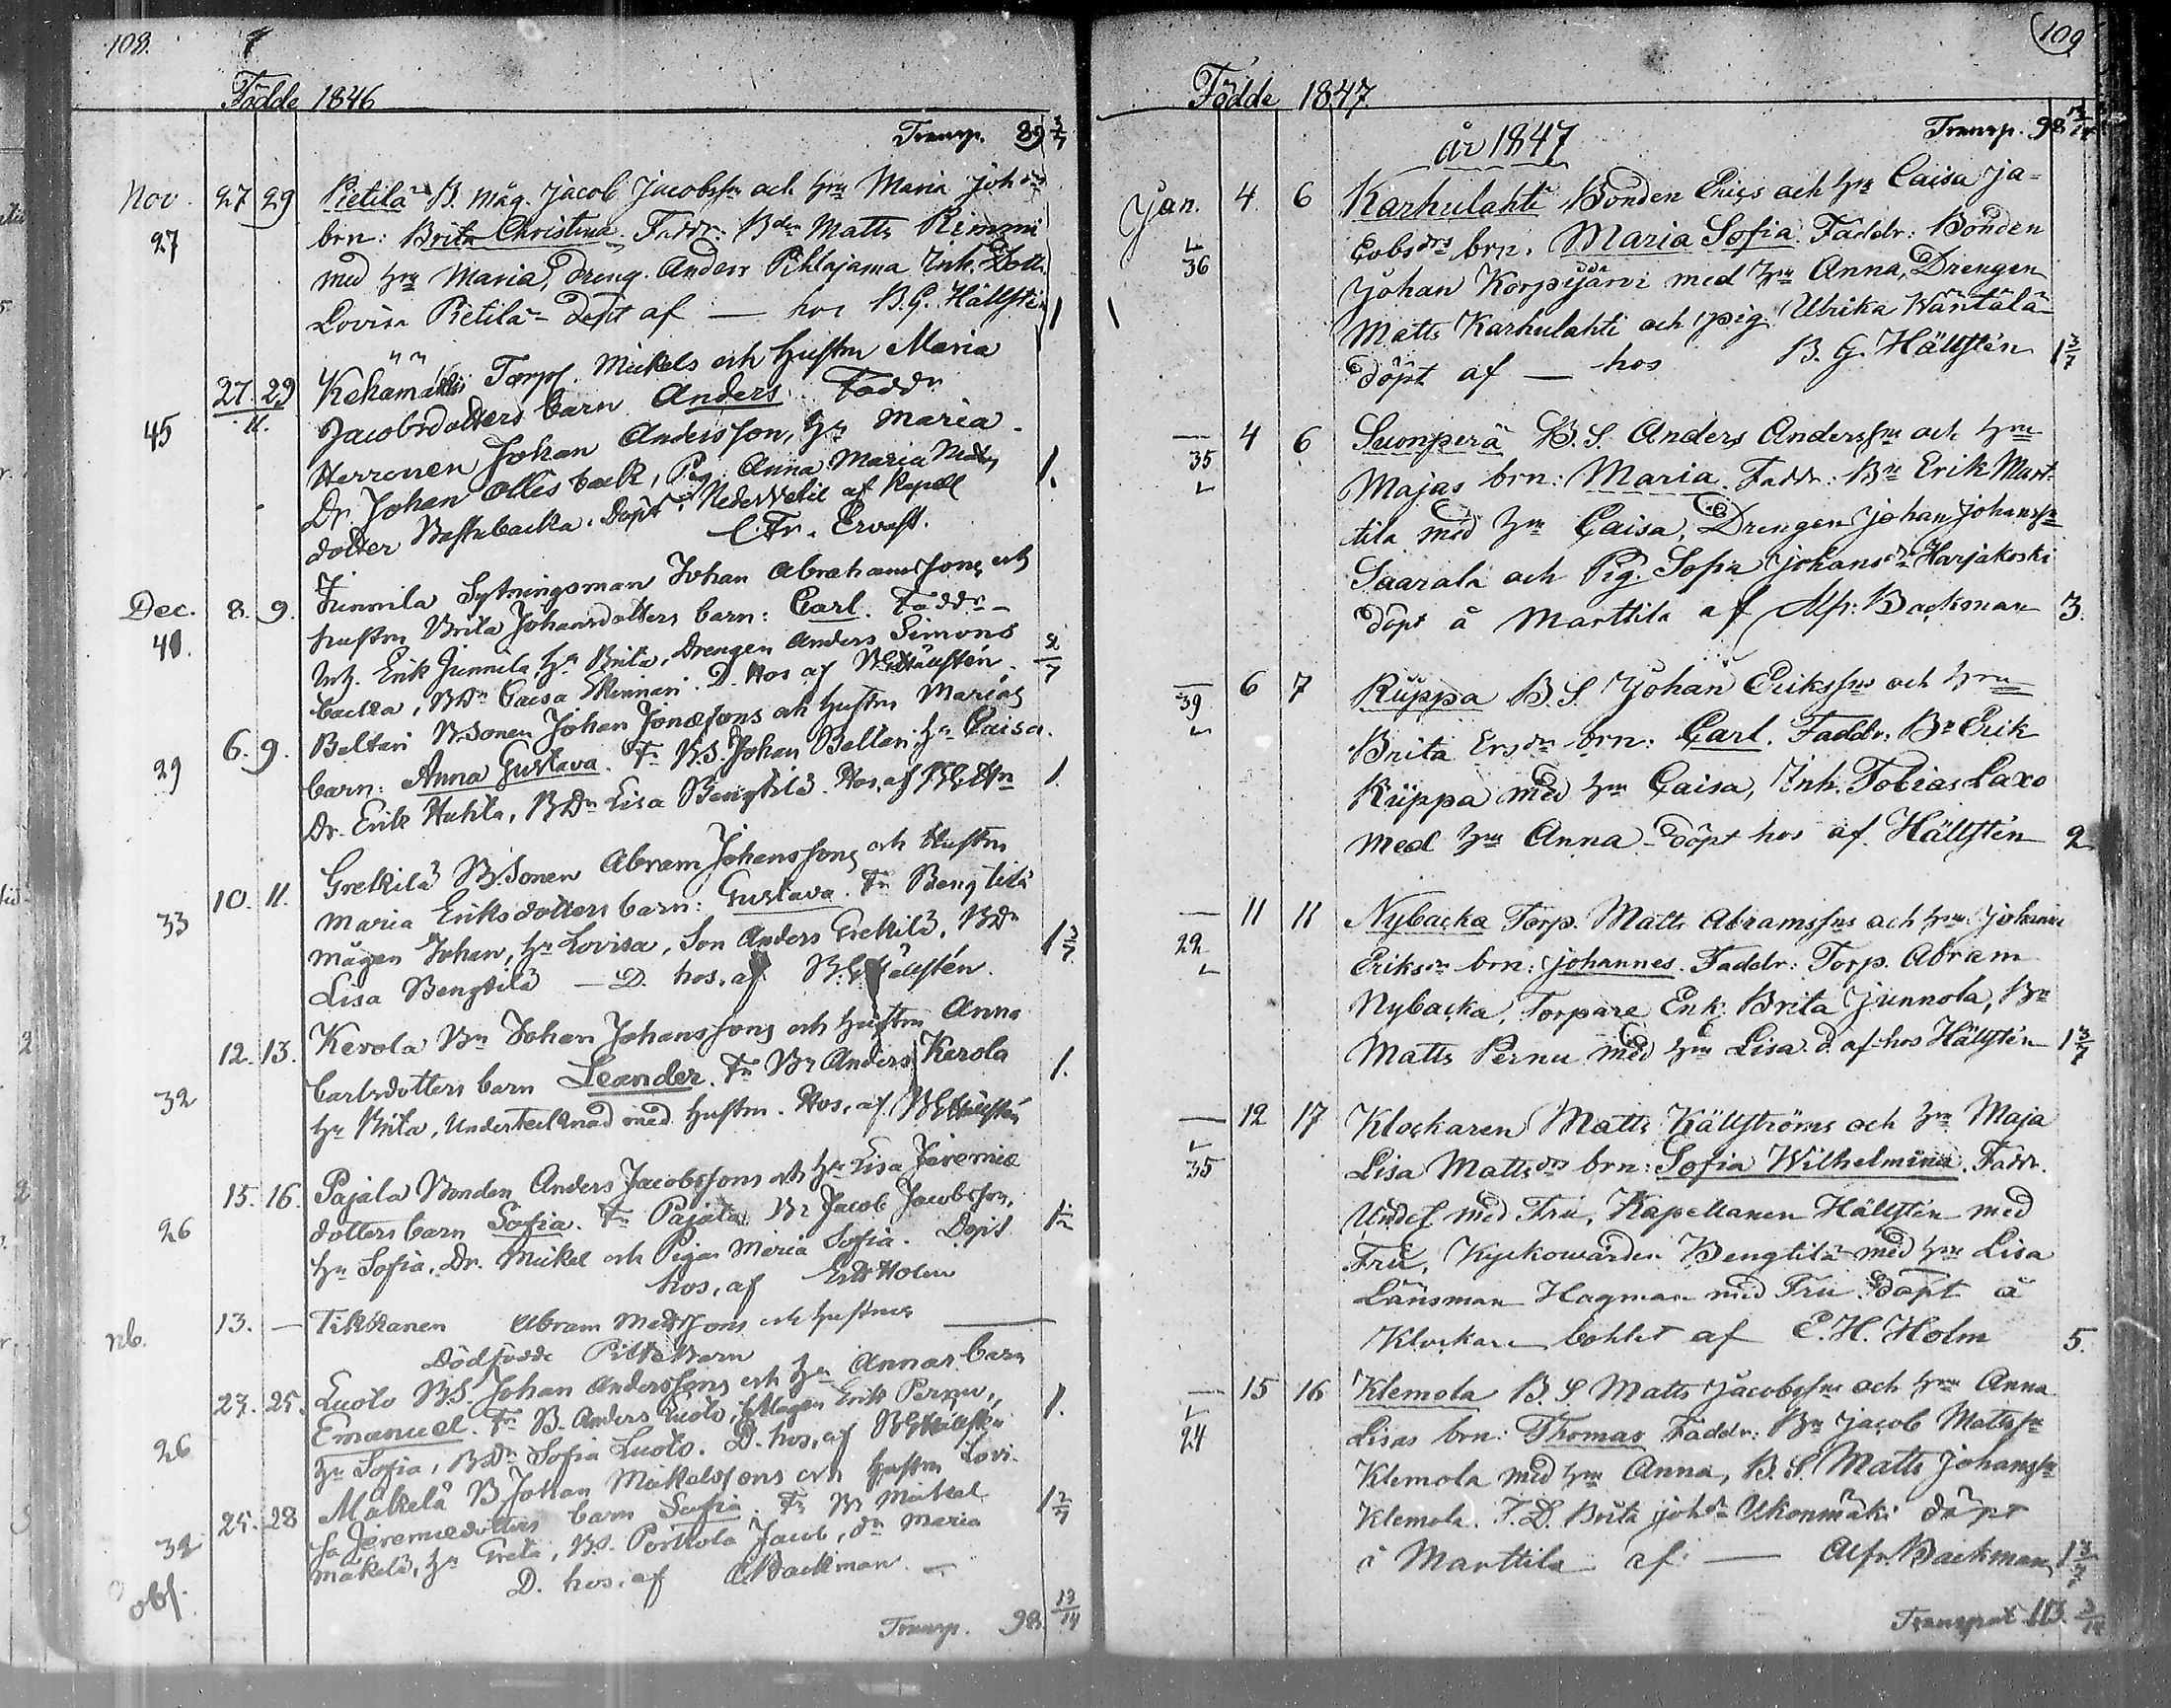 108.
Födde 1846
Transp. 89 3/7
Nov. 27 29 Pietilä B. måg. Jacob Jacobssn och hru Maria Joh dr
27 brn: Brita Christina. Faddr: Bdn Matts Rimmi
med hru Maria, Dreng. Anders Pihlajama Inh. Dottr
Lovisa Pietilä Döpt af — hos B.G. Hällstén 1
27. 29 Torp. Mickels och Hustru Maria
11.
45 Jacobsdotters barn Anders. Faddr
Herronen Johan Andersson, hu Maria
Dr. Johan Olles back, Pig. Anna Maria Matts 1.
dotter Bastubacka. Döpt i Nedervetil af Kapell
C. Fr. Ervast.
Dec. 8. 9. Junnila Sytningsman Johan Abrahamssons och
40. hustru Brita Johansdotters barn: Carl. Faddr
Inh. Erik Junnila, hu Brita, Drengen Anders Simons
backa, BDr Caisa Skinnari. D. Hos af BGHällstén. 2/7
6. 9. Beltari B.Sonen Johan Jonassons och hustru Marias
29 barn: Anna Gustava. Fr B.S. Johan Beltari, hu Caisa.
Dr. Erik Huhta, BDr Lisa Bengtilä. Hos, af BGHn 1.
10. 11. Grekilä B.Sonen Abram Johanssons och Hustru
33 Maria Eriksdotters barn: Gustava. Fr Bengtilä
mågen Johan, hu Lovisa, Son Anders Grekilä, BDr 1 3/7
Lisa Bengtilä — D. hos, af B.G. Hällstén.
12. 13. Kerola Bn Johan Johanssons och hustru Anna
32 Carlsdotters barn Leander. Fr Bn Anders Kerola 1.
hu Brita, Undertecknad med hustru. Hos, af BGHällstén
15. 16. Pajala Bonden Anders Jacobssons och hu Lisa Jeremie
26 dotters barn Sofia. Fr Pajala Bn Jacob Jacobsson, 1 1/2
hu Sofia, Dr. Mickel och Pigan Maria Sofia. Döpt
hos, af EHHolm
nb. 13. — Tikkanen Abram Mattssons och hustrus —
Dödfödde Pittebarn
23. 25. Luoto BS. Johan Anderssons och hu Annas barn
26 Emanuel. Fr B. Anders Luoto, Mågen Erik Pernu, 1.
hu Sofia, BDr Sofia Luoto. D. hos, af BGHällstén
25. 28 Mäkelä B Johan Mickelssons och hustru Lovi-
32 sa Jeremiedotters barn Sofia. Fr Bn Mickel 1 2/7
Mäkelä, hu Greta, B.S. Porkola Jacob, dr Maria
obs. D. hos, af ABackman. —
Transp. 98 13/14
109
Födde 1847
år 1847 Transp. 98 13/14
Jan. 4 6 Karhulahti Bonden Erics och hru Caisa Ja-
36 cobsdrs brn. Maria Sofia. Faddr: Bonden
Johan Korpijärvi med hru Anna, Drengen
Matts Karhulahti och pig. Ulrika Wäntälä
döpt af — hos B.G. Hällstén 1 3/7
— 4 6 Suonperä B.S. Anders Anderssns och hru
35 Majas brn: Maria. Faddr: Bn Erik Mart-
tila med hru Caisa, Drengen Johan Johanssn
Saarala och Pig. Sofia Johansdr Harjakoski
döpt å Marttila af Alfr: Backman 3.
— 6 7 Rüppa B.S. Johan Erikssns och hru
39 Brita Ersdr brn: Carl. Faddr: Bn Erik
Rüppa med hru Caisa, Inh. Tobias Laxo
med hru Anna döpt hos af. Hällstén 2
— 11 11 Nybacka Torp. Matts Abramssns och hru Johanna
22 Eriksdr brn: Johannes. Faddr: Torp. Abram
Nybacka, Torpare Enk. Brita Junnola, Bn
Matts Pernu med hru Lisa. d. af hos Hällstén 1 3/7
— 12 17 Klockaren Matts Källströms och hru Maja
35 Lisa Mattsdrs brn: Sofia Wilhelmina. Faddr.
Undef med Fru, Kapellanen Hällstén med
Fru, Kyrkowärden Bengtilä med hru Lisa
Länsman Hagman med Fru. döpt å
Klockare bohlet af E.H. Holm 5.
— 15 16 Klemola B.S. Matts Jacobssns och hru Anna
24 Lisas brn: Thomas Faddr: Bn Jacob Mattssn
Klemola med hru Anna, B.S. Matts Johanssn
Klemola. T.D. Brita Johdr Uskonmäki döpt
i Marttila af: — Alfr. Backman 1 3/7
Transport 113. 3/14